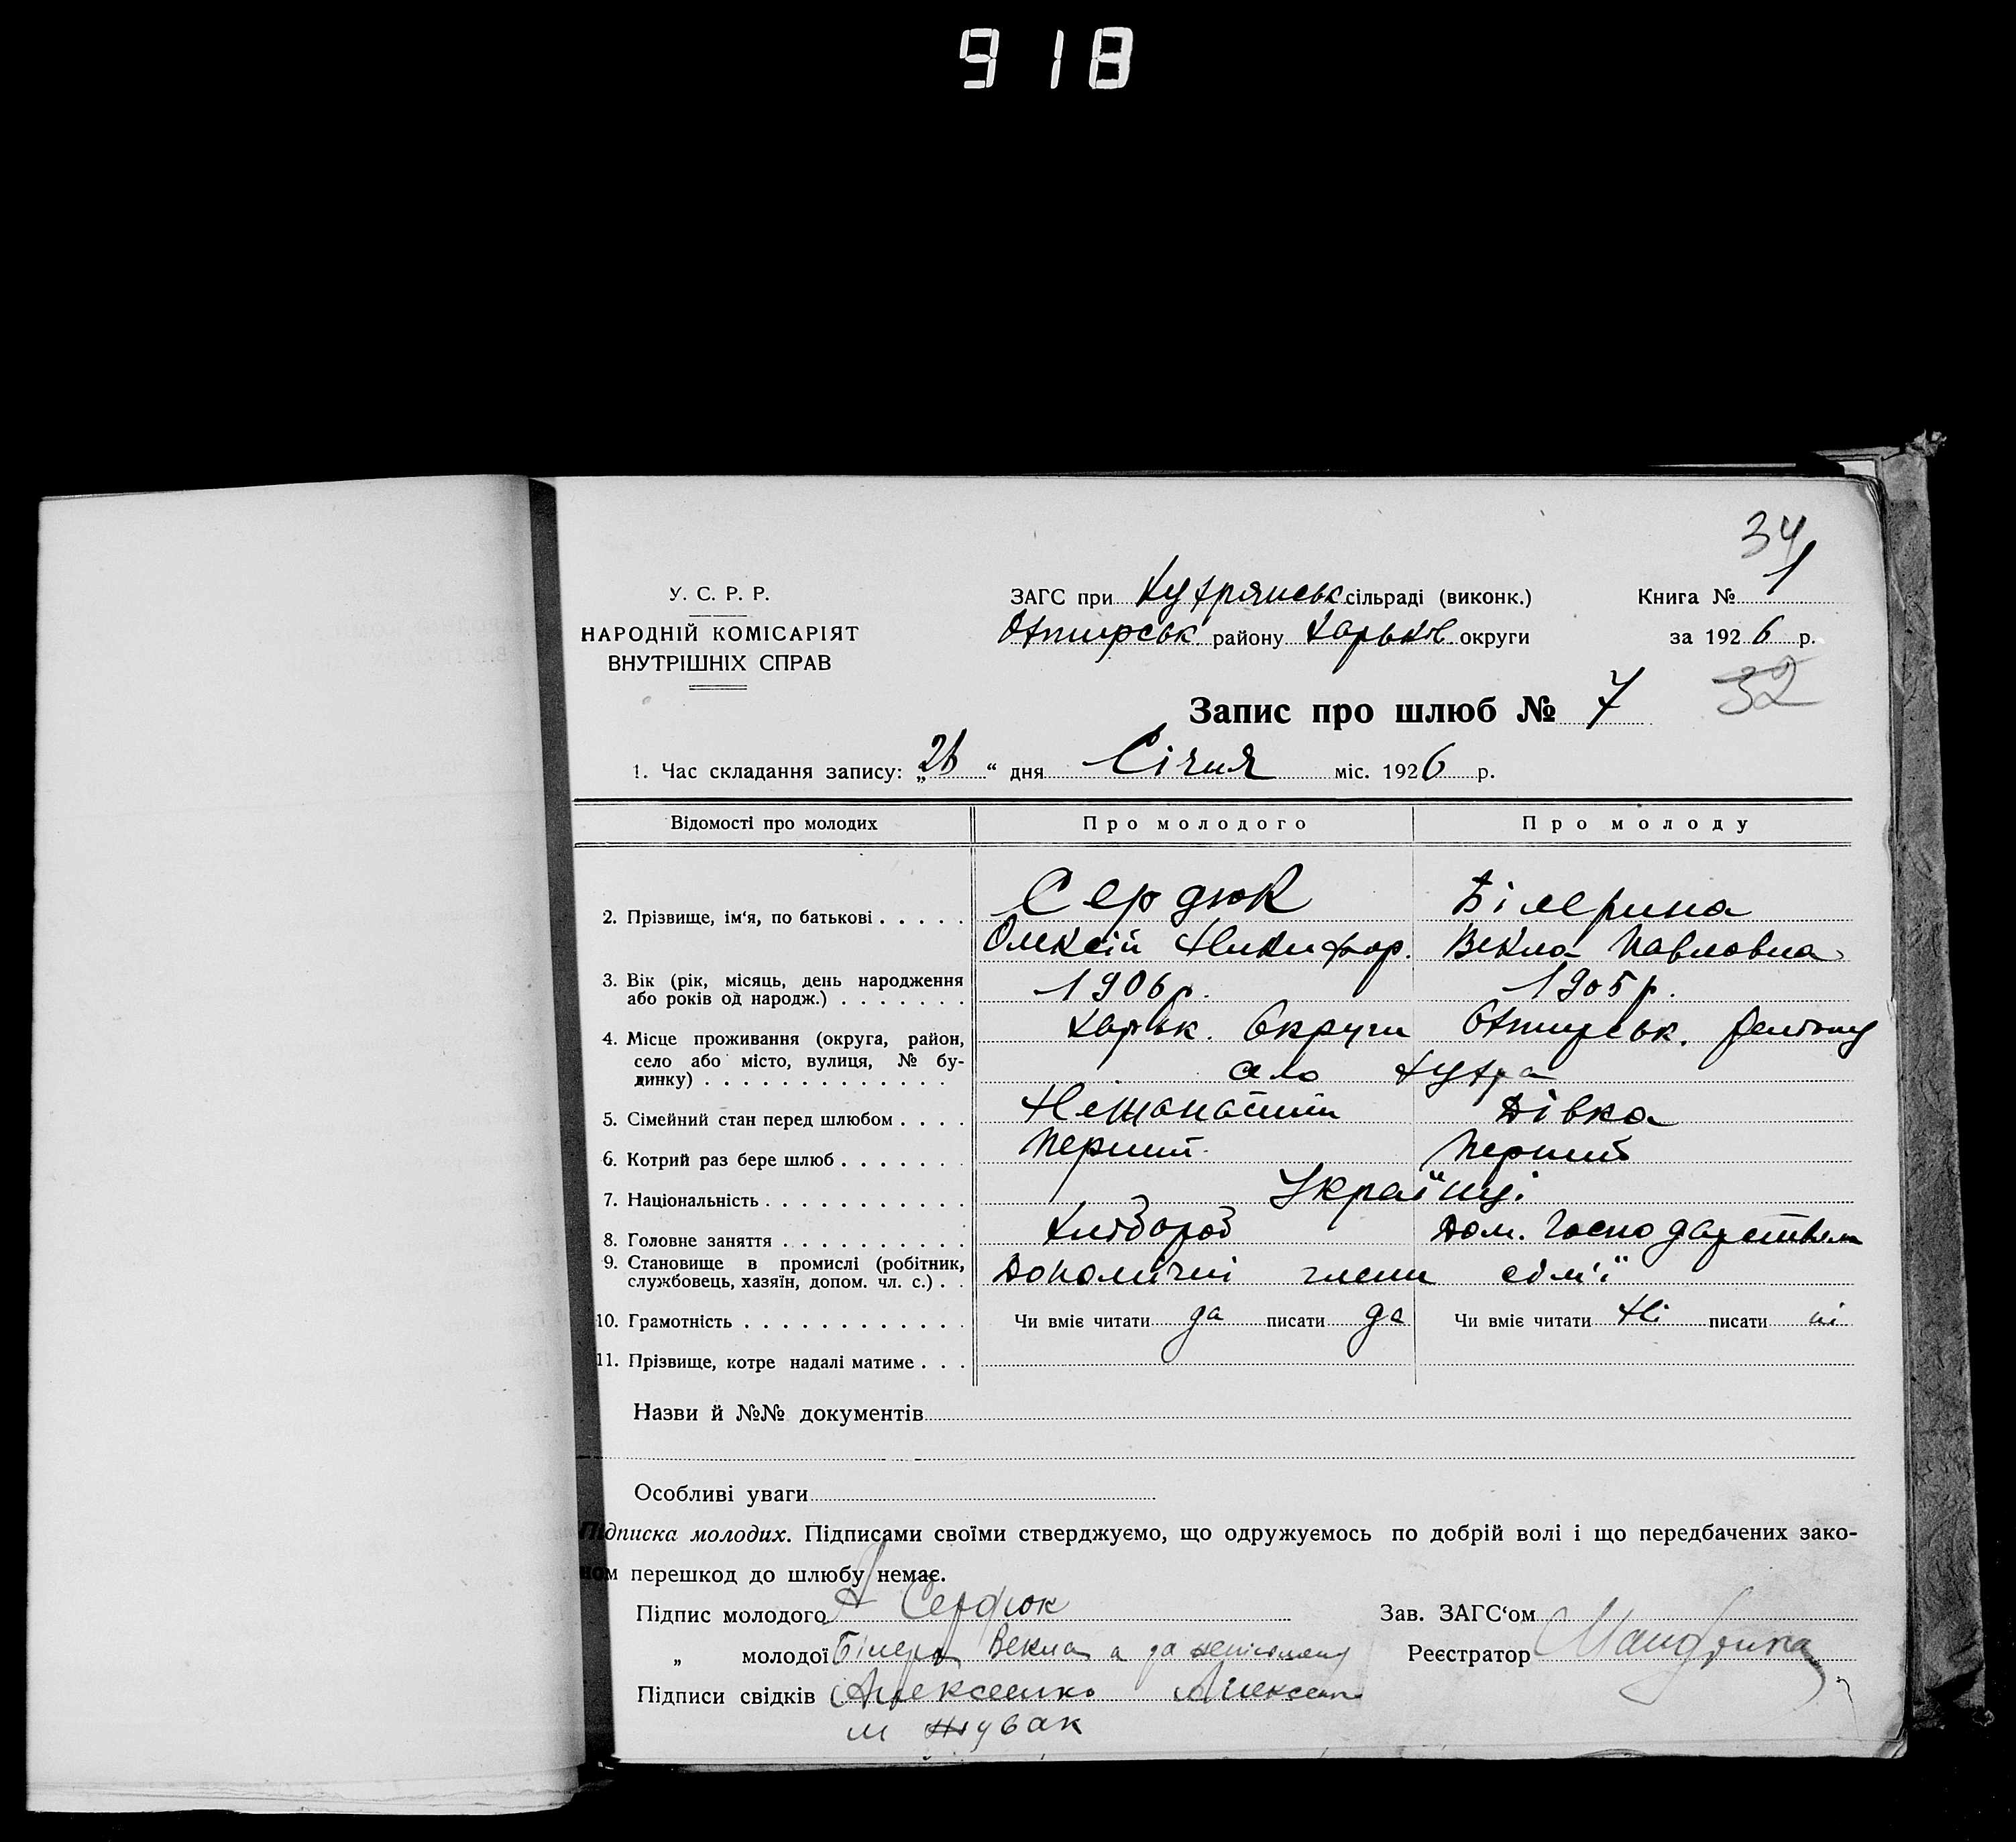 918
34
У. С. Р. Р.
НАРОДНІЙ КОМІСАРІЯТ
ВНУТРІШНІХ СПРАВ
ЗАГС при Хухрянськ сільраді (виконк.)
Книга № 1
Охтирськ району Харьків. округи
за 1926 р.
32
Запис про шлюб № 7
1. Час складання запису: „26“ дня Січня міс. 1926 р.
Відомості про молодих
Про молодого
Про молоду
2. Прізвище, ім‘я, по батькові
Сердюк
Білерина
Олексій Никифор.
Векла Павловна
3. Вік (рік, місяць, день народження
або років од народж.)
1906 р.
1905 р.
4. Місце проживання (округа, район,
село або місто, вулиця, № бу-
динку)
Харьк. Округи Охтирськ. Району
село Хухра
5. Сімейний стан перед шлюбом
Нежонатий
Дівка
6. Котрий раз бере шлюб
Перший
Перший
7. Національність
Українці
8. Головне заняття
Хлібороб
Дом. господарством
9. Становище в промислі (робітник,
службовець, хазяїн, допом. чл. с.)
Допомічні члени сім'ї
10. Грамотність
Чи вміє читати да писати да
Чи вміє читати Ні писати ні
11. Прізвище, котре надалі матиме
Назви й №№ документів
Особливі уваги
Підписка молодих. Підписами своїми стверджуємо, що одружуємось по добрій волі і що передбачених зако-
ном перешкод до шлюбу немає.
Підпис молодого А Сердюк
Зав. ЗАГС‘ом
„ молодої Білера Векла а за
Реєстратор
Підписи свідків Алексеенко
м Жувак